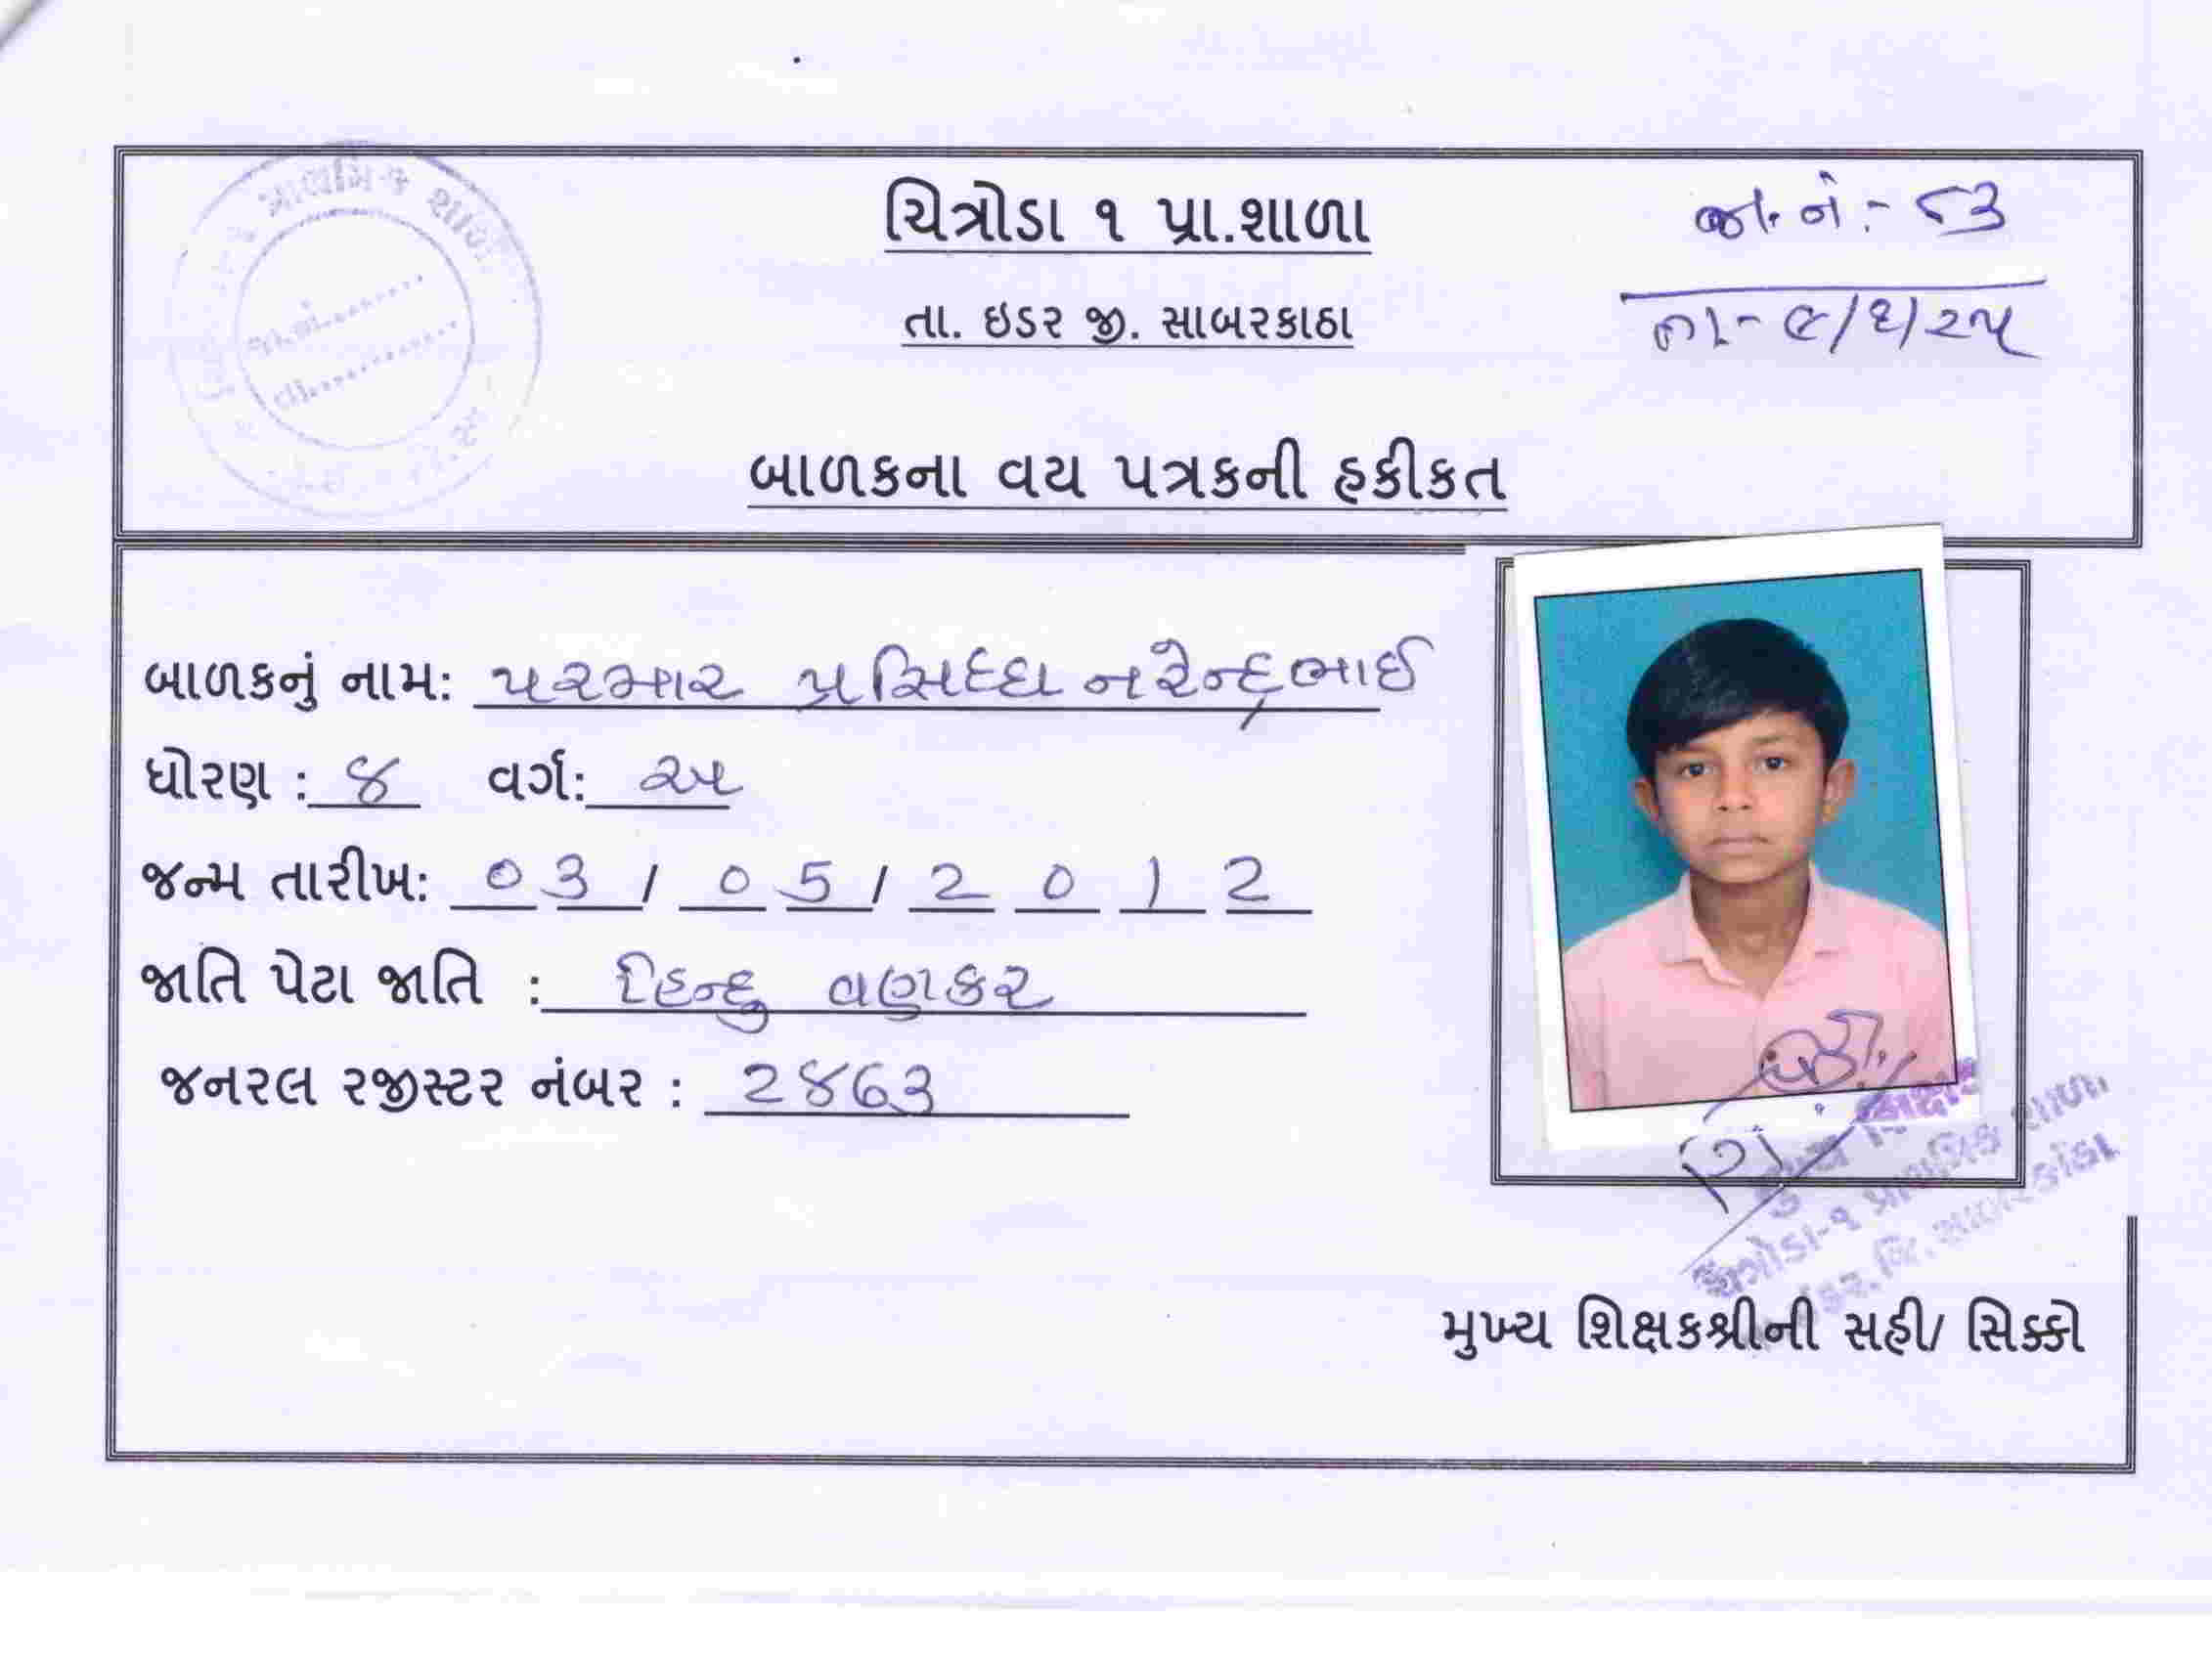 પ્રાથમિક શાળા
જા.નં.......
તા..........
ચિત્રોડા ૧ પ્રા.શાળા
તા. ઇડર જી. સાબરકાઠા
જા.નં:- ૮૩
તા- ૯/૬/૨૫
બાળકના વય પત્રકની હકીકત
બાળકનું નામ: પરમાર પ્રસિધ્ધ નરેન્દ્રભાઈ
ધોરણ : ૪ વર્ગ: અ
જન્મ તારીખ: 03/05/2012
જાતિ પેટા જાતિ : હિન્દુ વણકર
જનરલ રજીસ્ટર નંબર : 2863
મુખ્ય શિક્ષક
ચિત્રોડા-૧ પ્રાથમિક શાળા
તા.ઇડર.જિ.સાબરકાંઠા
મુખ્ય શિક્ષકશ્રીની સહી/ સિક્કો